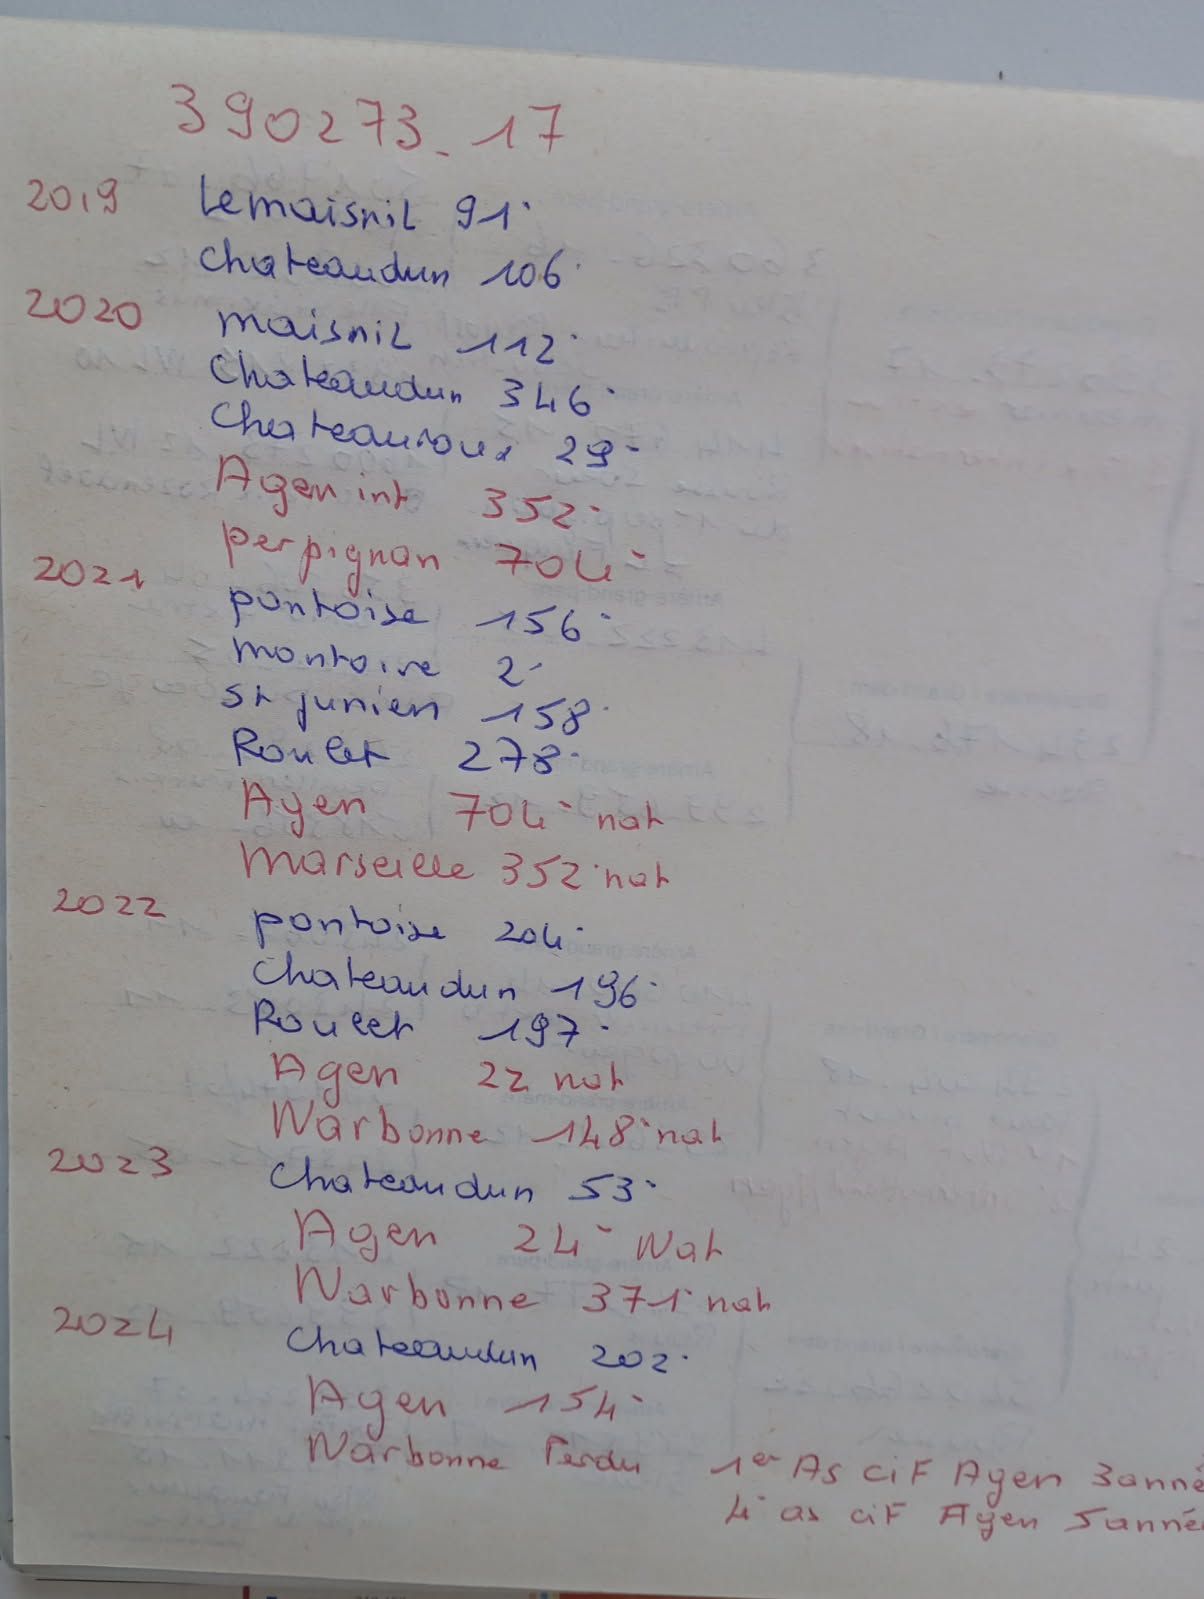 390273-17
2019 Lemaisnil 91·
Chateaudun 106·
2020 maisnil 112·
Chateaudun 346·
Chateauroux 29-
Agen int 352·
perpignan 704-
2021 pontoise 156·
montoire 2·
St junien 158·
Roulet 278·
Agen 704· nat
Marseille 352· nat
2022 pontoise 204·
Chateaudun 196·
Roulet 197·
Agen 22 nat
Narbonne 148· nat
2023 Chateaudun 53·
Agen 24- Nat
Narbonne 371· nat
2024 Chateaudun 202·
Agen 154·
Narbonne Perdu 1er As CiF Agen 3anné
4· as CiF Agen 5anné